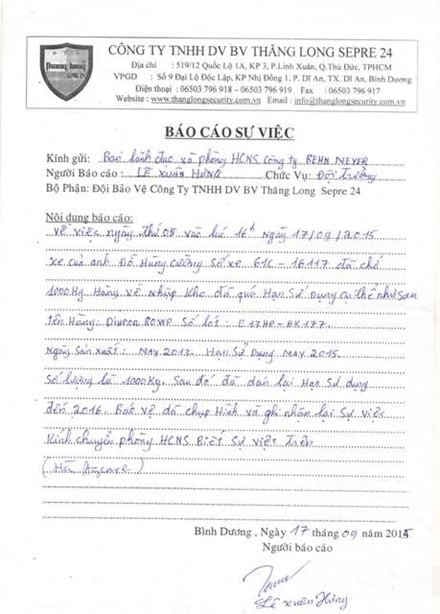 CÔNG TY TNHH DV BV THĂNG LONG SEPRE 24
Địa chỉ : 519/12 Quốc Lộ 1A, KP 3, P.Linh Xuân, Q.Thủ Đức, TPHCM
VPGD : Số 9 Đại Lộ Độc Lập, KP Nhị Đồng 1, P. Dĩ An, TX. Dĩ An, Bình Dương
Điện thoại : 06503 796 918 – 06503 796 919 Fax : 06503 796 917
Website : www.thanglongsecurity.com.vn Email : info@thanglongsecurity.com.vn
BÁO CÁO SỰ VIỆC
Kính gửi: Ban lãnh đạo và phòng HCNS Công ty BEHN MEYER
Người Báo cáo : LÊ XUÂN HÙNG Chức Vụ: Đội trưởng
Bộ Phận: Đội Bảo Vệ Công Ty TNHH DV BV Thăng Long Sepre 24
Nội dung báo cáo:
Về việc ngày thứ 05 vào lúc 16h ngày 17/09/2015
xe của anh Đỗ Hùng Cường Số xe 61C - 16117 đã chở
1000Kg Hàng về nhập kho đã quá Hạn Sử Dụng cụ thể như sau
Tên Hàng: Số lot:
Ngày Sản xuất: MAY.2013. Hạn Sử Dụng MAY 2015.
Số lượng là 1000Kg. Sau đó đã dán lại Hạn Sử dụng
đến 2016. Bảo vệ đã chụp Hình và ghi nhận lại Sự việc
Kính chuyển phòng HCNS Biết Sự việc trên
Bình Dương , Ngày 17 tháng 09 năm 2015
Người báo cáo
Lê Xuân Hùng